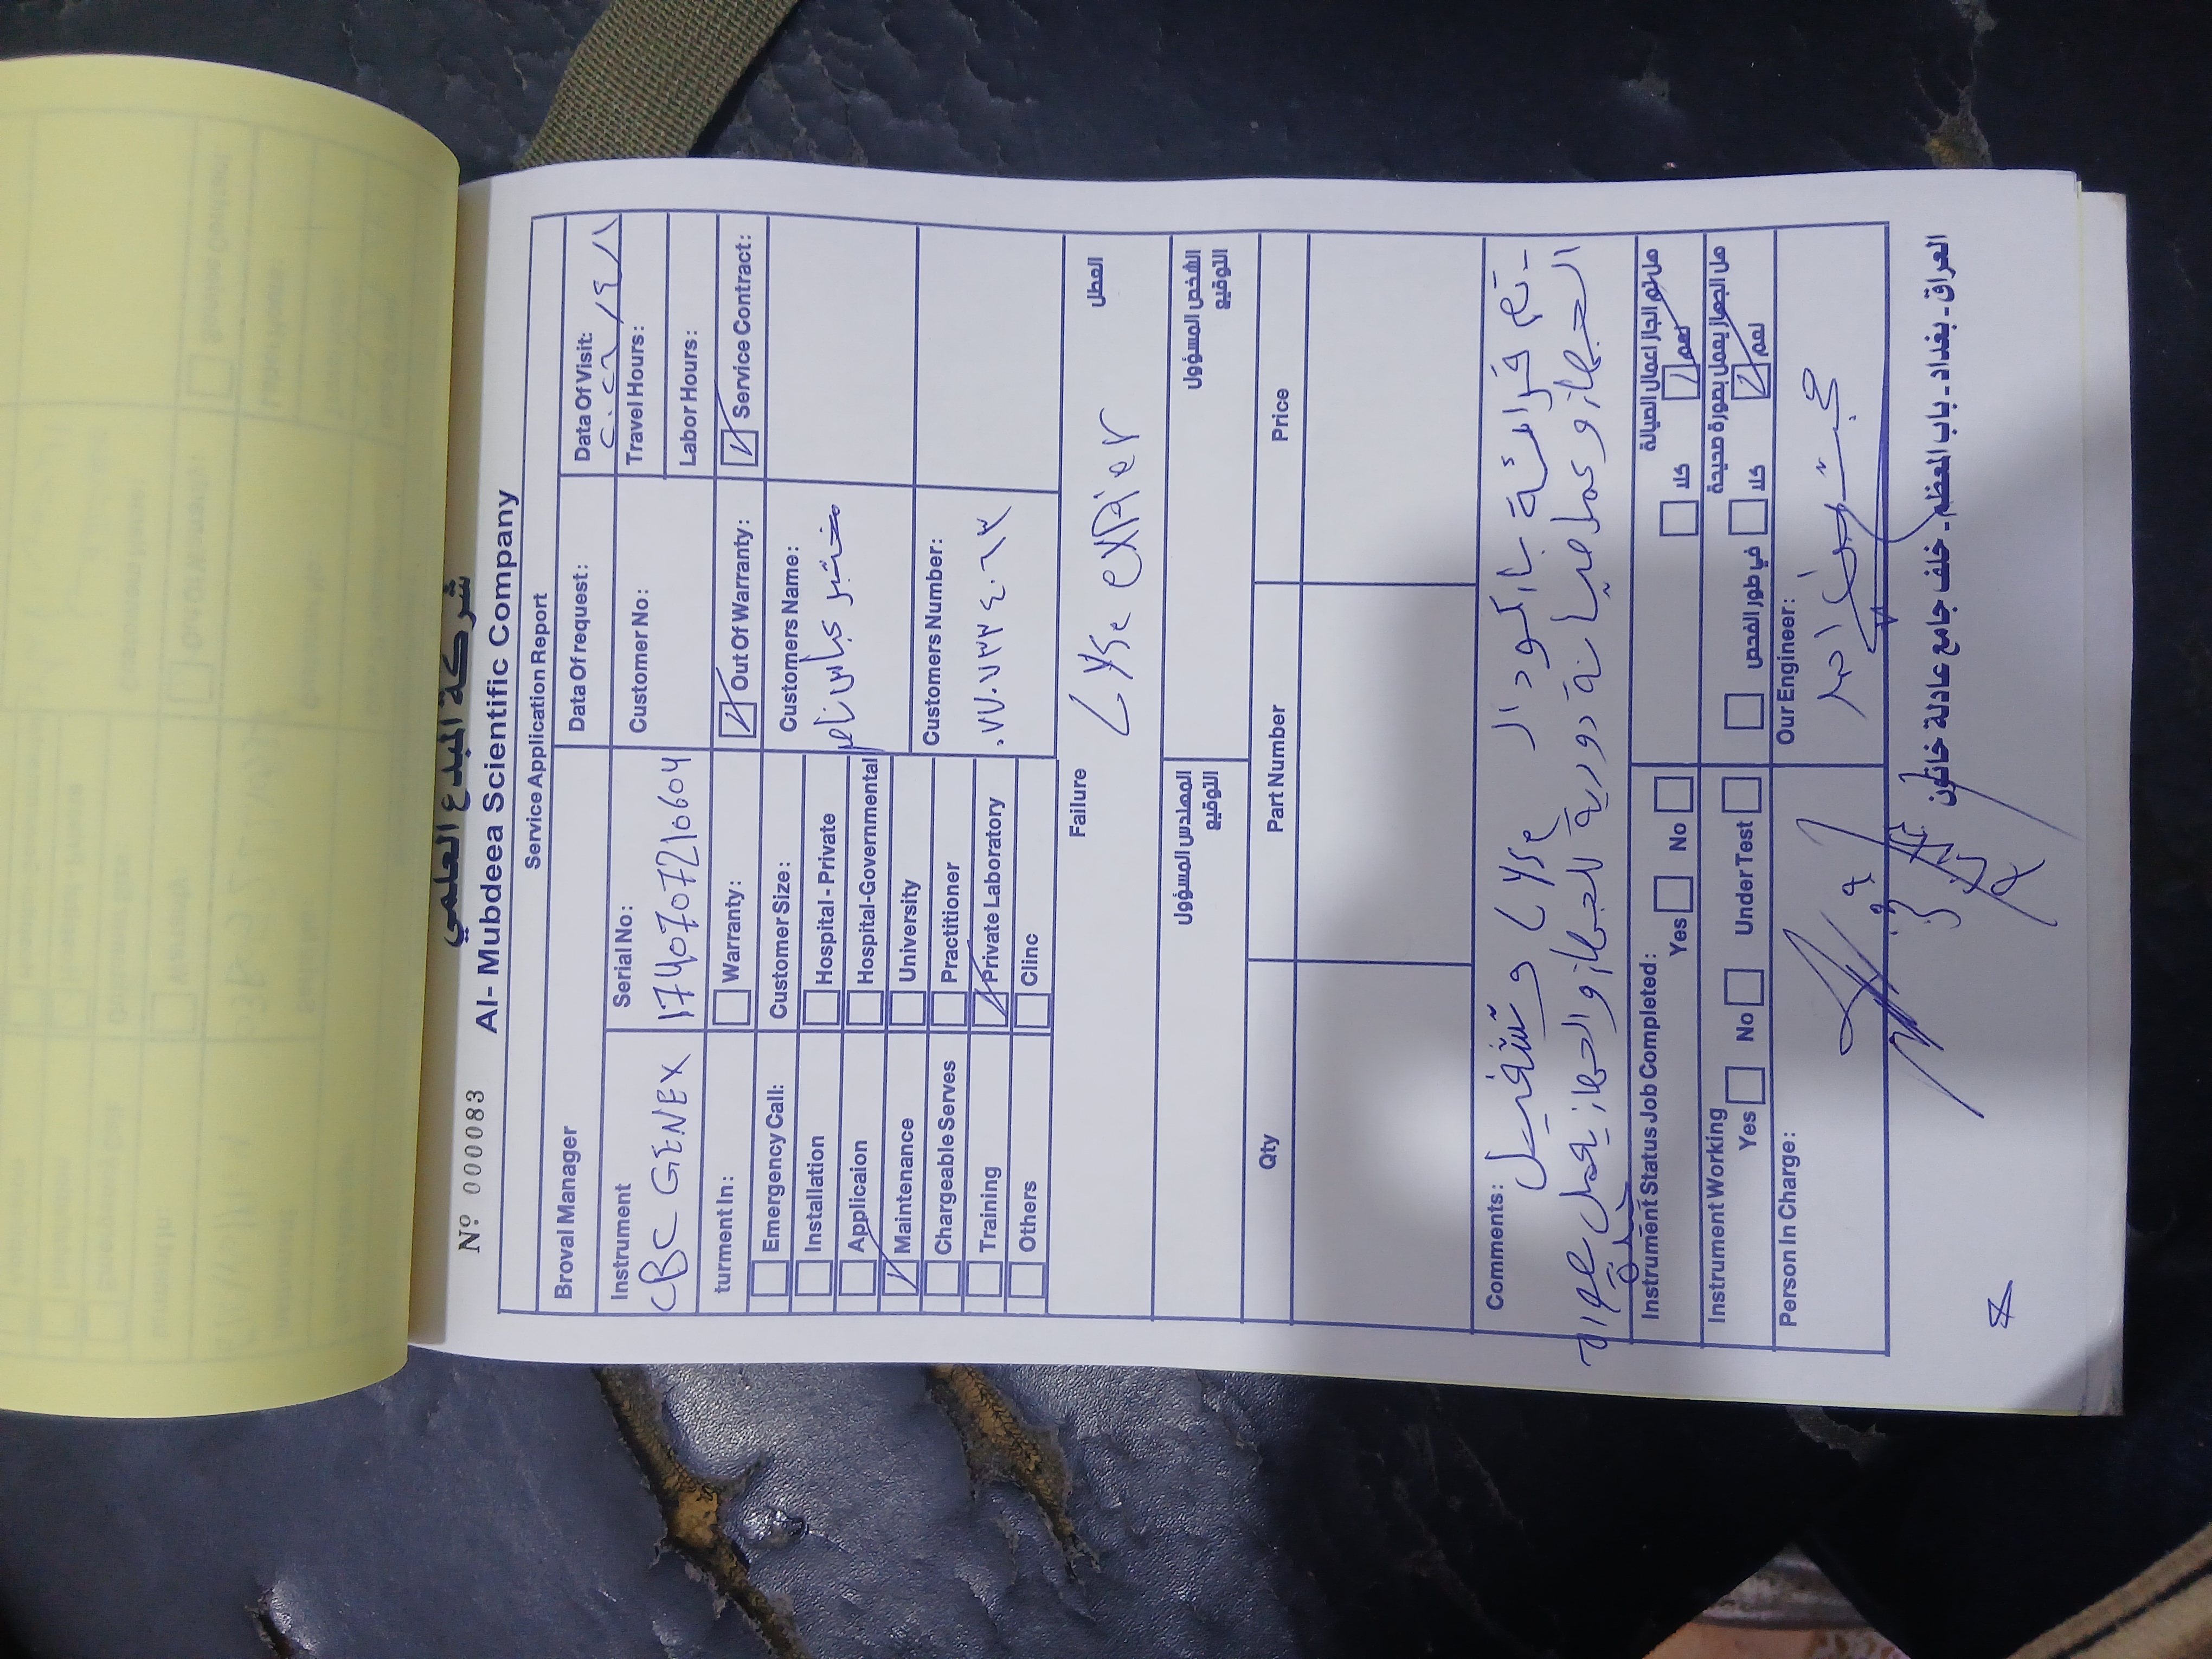 شركة المبدع العلمي
Nº 000083
Al- Mubdeea Scientific Company
Service Application Report
Broval Manager
Data Of request:
Data Of Visit:
Instrument
Serial No:
Customer No:
Travel Hours:
CBC GENEX
Labor Hours:
turment In:
Warranty:
Out Of Warranty:
Service Contract:
Emergency Call:
Customer Size:
Customers Name:
Installation
Hospital - Private
مختبر
Applicaion
Hospital-Governmental
Maintenance
University
Customers Number:
Chargeable Serves
Practitioner
Training
Private Laboratory
Others
Clinc
Failure
العطل
Lyse expier
المهندس المسؤول
الشخص المسؤول
التوقيع
التوقيع
Qty
Part Number
Price
Comments:
- تم قرائة باركود ال Lyse و تشغيل
الجهاز و عمل صيانة دورية للجهاز والجهاز يعمل
Instrument Status Job Completed:
هل تم انجاز اعمال الصيانة
Yes
No
كلا
نعم
Instrument Working
هل الجهاز يعمل بصورة صحيحة
Yes
No
Under Test
في طور الفحص
كلا
نعم
Person In Charge:
Our Engineer:
العراق - بغداد - باب المعظم - خلف جامع عادلة خاتون